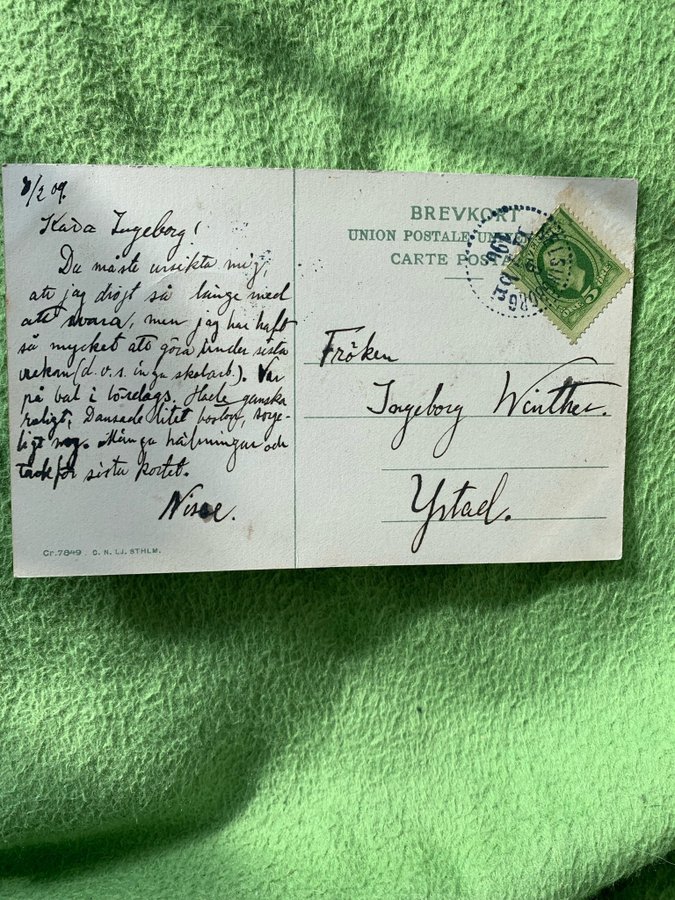 8/2 09.
Kära Ingeborg!
Du måste ursäkta mig,
att jag dröjt så länge med
att svara, men jag har haft
så mycket att göra under sista
veckan (d.v.s. inga skolarb.). Var
på bal i lördags. Hade ganska
roligt. Dansade litet boston, sorg-
ligt nog. Många hälsningar och
tack för sista kortet.
Nisse.
Cr. 7849 . O. N. LJ. STHLM.
BREVKORT
UNION POSTALE
CARTE POSTALE
Fröken
Ingeborg Winther.
Ystad.
5